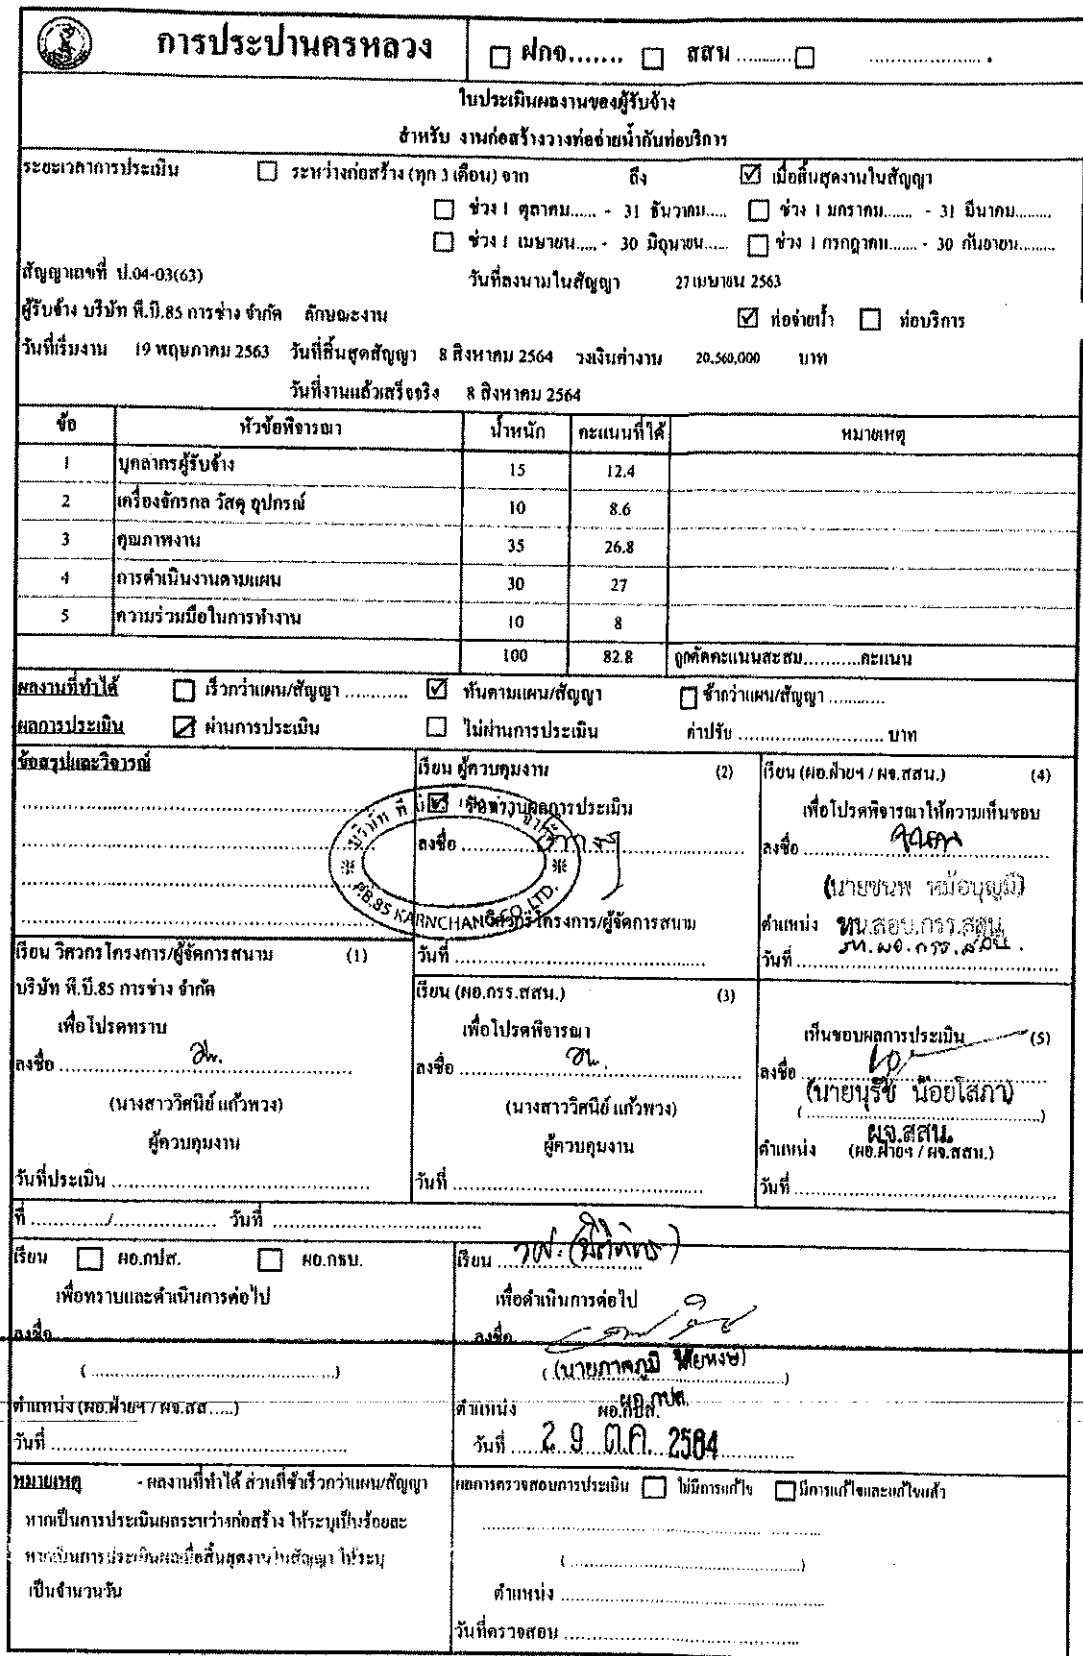 การประปานครหลวง ☐ ฝกจ....... ☐ สสน .......... ☐ ......................
ใบประเมินผลงานของผู้รับจ้าง
สำหรับ งานก่อสร้างวางท่อจ่ายน้ำกับท่อบริการ
ระยะเวลาการประเมิน ☐ ระหว่างก่อสร้าง (ทุก 3 เดือน) จาก ถึง ☑ เมื่อสิ้นสุดงานในสัญญา
☐ ช่วง 1 ตุลาคม...... - 31 ธันวาคม..... ☐ ช่วง 1 มกราคม....... - 31 มีนาคม.........
☐ ช่วง 1 เมษายน..... - 30 มิถุนายน...... ☐ ช่วง 1 กรกฎาคม....... - 30 กันยายน.........
สัญญาเลขที่ ป.04-03(63) วันที่ลงนามในสัญญา 27 เมษายน 2563
ผู้รับจ้าง บริษัท พี.บี.85 การช่าง จำกัด ลักษณะงาน ☑ ท่อจ่ายน้ำ ☐ ท่อบริการ
วันที่เริ่มงาน 19 พฤษภาคม 2563 วันที่สิ้นสุดสัญญา 8 สิงหาคม 2564 วงเงินค่างาน 20,560,000 บาท
วันที่งานแล้วเสร็จจริง 8 สิงหาคม 2564
ข้อ หัวข้อพิจารณา น้ำหนัก คะแนนที่ได้ หมายเหตุ
1 บุคลากรผู้รับจ้าง 15 12.4
2 เครื่องจักรกล วัสดุ อุปกรณ์ 10 8.6
3 คุณภาพงาน 35 26.8
4 การดำเนินงานตามแผน 30 27
5 ความร่วมมือในการทำงาน 10 8
100 82.8 ถูกตัดคะแนนสะสม...........คะแนน
ผลงานที่ทำได้ ☐ เร็วกว่าแผน/สัญญา ............ ☑ ทันตามแผน/สัญญา ☐ ช้ากว่าแผน/สัญญา ...........
ผลการประเมิน ☑ ผ่านการประเมิน ☐ ไม่ผ่านการประเมิน ค่าปรับ ........................... บาท
ข้อสรุปและวิจารณ์
เรียน ผู้ควบคุมงาน (2)
☑ รับทราบผลการประเมิน
ลงชื่อ
บริษัท พี.บี.85 การช่าง จำกัด
P.B.85 KARNCHANG CO.,LTD.
วิศวกรโครงการ/ผู้จัดการสนาม
วันที่
เรียน (ผอ.ฝ่ายฯ / ผจ.สสน.) (4)
เพื่อโปรดพิจารณาให้ความเห็นชอบ
ลงชื่อ
(นายชนพ หม้อบุญมี)
ตำแหน่ง หน.สอบ.กรร.สสน.
วันที่
เรียน วิศวกรโครงการ/ผู้จัดการสนาม (1)
บริษัท พี.บี.85 การช่าง จำกัด
เพื่อโปรดทราบ
ลงชื่อ
(นางสาววิศนีย์ แก้วพวง)
ผู้ควบคุมงาน
วันที่ประเมิน
เรียน (ผอ.กรร.สสน.) (3)
เพื่อโปรดพิจารณา
ลงชื่อ
(นางสาววิศนีย์ แก้วพวง)
ผู้ควบคุมงาน
วันที่
เห็นชอบผลการประเมิน (5)
ลงชื่อ
(นายนุรัช น้อยโสภา)
ผจ.สสน.
ตำแหน่ง (ผอ.ฝ่ายฯ / ผจ.สสน.)
วันที่
ที่ ............/................. วันที่
เรียน ☐ ผอ.กปส. ☐ ผอ.กรบ.
เพื่อทราบและดำเนินการต่อไป
ลงชื่อ
(..........................................)
ตำแหน่ง (ผอ.ฝ่ายฯ / ผจ.สส.....)
วันที่
เรียน
เพื่อดำเนินการต่อไป
ลงชื่อ
ผอ.กปส.
ตำแหน่ง ผอ.กปส.
วันที่ 29 ต.ค. 2564
หมายเหตุ - ผลงานที่ทำได้ ส่วนที่ช้าเร็วกว่าแผน/สัญญา
หากเป็นการประเมินผลระหว่างก่อสร้าง ให้ระบุเป็นร้อยละ
หากเป็นการประเมินผลเมื่อสิ้นสุดงานในสัญญา ให้ระบุ
เป็นจำนวนวัน
ผลการตรวจสอบการประเมิน ☐ ไม่มีการแก้ไข ☐ มีการแก้ไขและแก้ไขแล้ว
(..........................................)
ตำแหน่ง
วันที่ตรวจสอบ